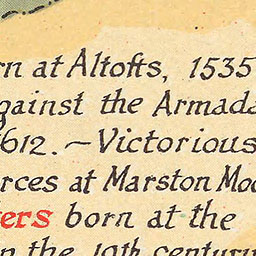 rn at Altofts, 1535
gainst the Armada
1612. – Victorious
orces at Marston Moo
ers born at the
n the 19th century